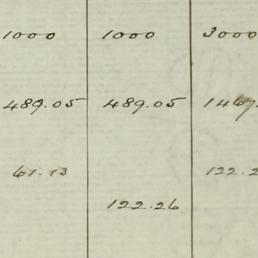 1000 1000 3000
489.05 489.05 1467.
61.13 122.2
122.26